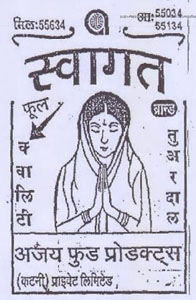 मिल:-55634
आ:- 55034
55134
स्वागत
फूल
ब्रान्ड
क्वालिटी
तुअर दाल
अजय फुड प्रोडक्ट्स
(कटनी) प्राइवेट लिमिटेड